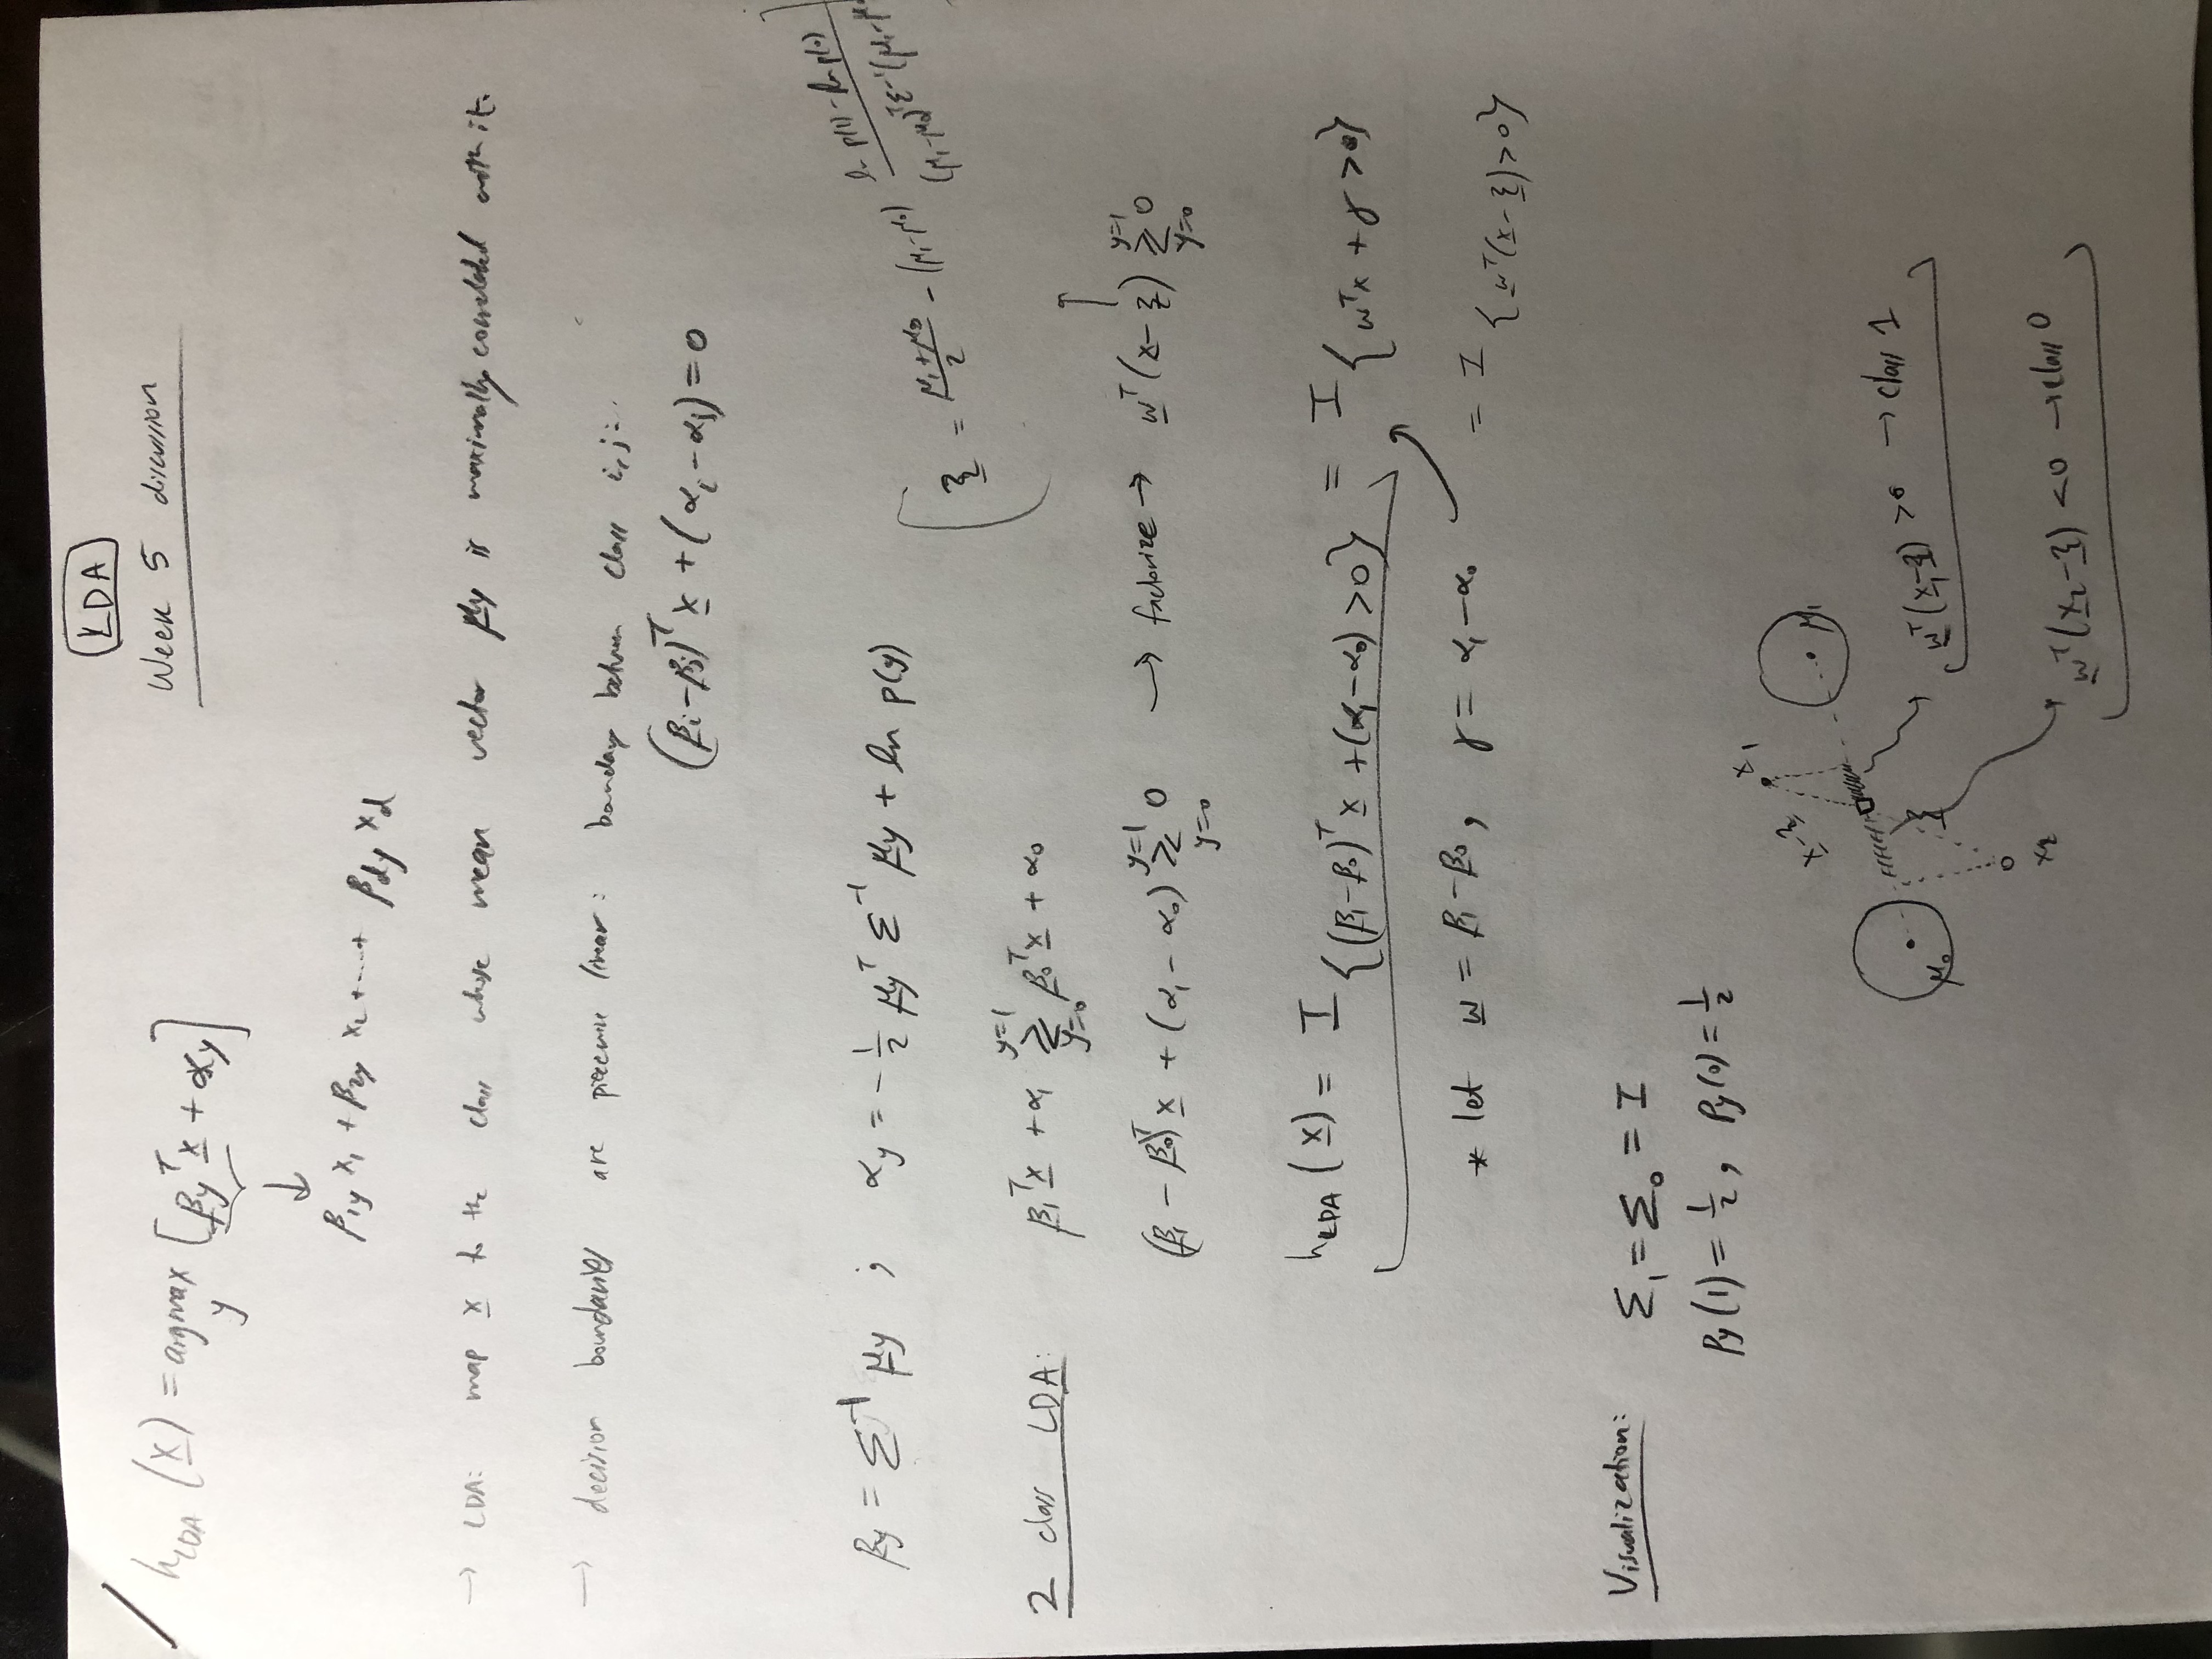 LDA
Week 5 discussion
h_LDA (x) = argmax_y [β_y^T x + α_y]
↓
β_1y x_1 + β_2y x_2 + ..... + β_dy x_d
→ LDA: map x to the class whose mean vector μ_y is maximally correlated with it.
→ decision boundaries are piecewise linear: boundary between class i, j:
(β_i - β_j)^T x + (α_i - α_j) = 0
β_y = Σ^-1 μ_y ; α_y = - 1/2 μ_y^T Σ^-1 μ_y + ln p(y)
[ξ = (μ_1 + μ_0)/2 - (μ_1 - μ_0) (ln p(1) - ln p(0))/((μ_1 - μ_0)^T Σ^-1 (μ_1 - μ_0
2 class LDA: β_1^T x + α_1 ≷ (y=1, y=0) β_0^T x + α_0
(β_1 - β_0)^T x + (α_1 - α_0) ≷ (y=1, y=0) 0 → factorize → w^T (x - ξ) ≷ (y=1, y=0) 0
h_LDA (x) = I {(β_1 - β_0)^T x + (α_1 - α_0) > 0} = I {w^T x + γ > 0}
* let w = β_1 - β_0, γ = α_1 - α_0 = I {w^T (x - ξ) > 0}
Visualization: Σ_1 = Σ_0 = I
P_y (1) = 1/2, P_y (0) = 1/2
x_1
x - ξ
μ_1
μ_0
ξ
w^T (x_1 - ξ) > 0 → class 1
x_2
w^T (x_2 - ξ) < 0 → class 0